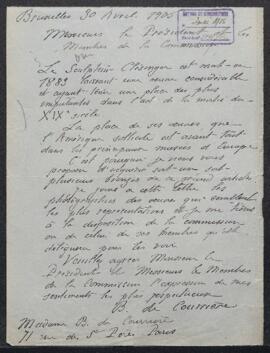 Bruxelles 30 Avril 1905
Messieurs le Président et les
Membres de la Commission
Le Sculpteur Clésinger est mort en
1883 laissant une œuvre considérable
et ayant tenu une place des plus
importantes dans l'art de la moitié du
XIXe siècle
La place de ses œuvres que
l'Amérique sollicite est avant tout
dans les principaux musées d'Europe
C'est pourquoi je vous
propose d'acquérir un ou
plusieurs bronzes de ce
Je joins à cette lettre les
photographies des œuvres qui semblent
les plus représentatives et je me tiens
à la disposition de la commission
ou de celui de ses membres qu'elle
déléguera pour les voir
Veuillez agréer Monsieur le
Président et Messieurs les Membres
de la Commission l'expression de mes
sentiments les plus respectueux
B. de Courrière
Madame B. de Courrière
71 rue des Sts Pères Paris